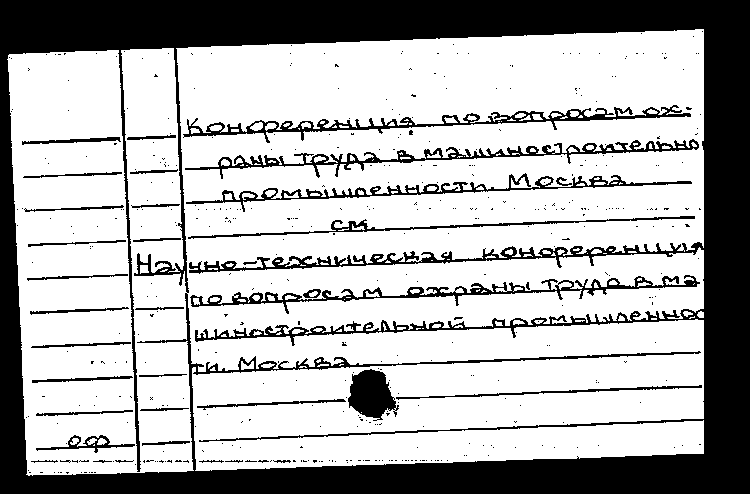 Конференция по вопросам ох-
раны труда в машиностроительно
промышленности. Москва.
см.
Научно-техническая конференция
по вопросам охраны труда в ма
шиностроительной промышленнос
ти. Москва.
оф